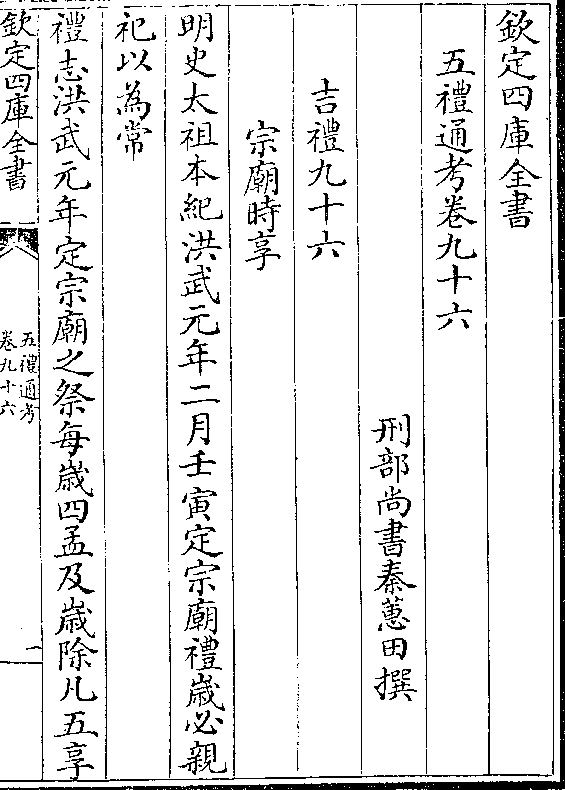 欽定四庫全書
五禮通考卷九十六
刑部尚書秦蕙田撰
吉禮九十六
宗廟時享
明史太祖本紀洪武元年二月壬寅定宗廟禮歲必親
祀以為常
禮志洪武元年定宗廟之祭每歲四孟及歲除凡五享
欽定四庫全書
五禮通考
卷九十六
一